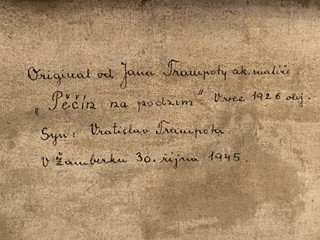 Originál od Jana Trampoty ak. malíře.
„Pěčín na podzim" V roce 1926 olej.
Syn: Vratislav Trampota.
V Žamberku 30. října 1945.